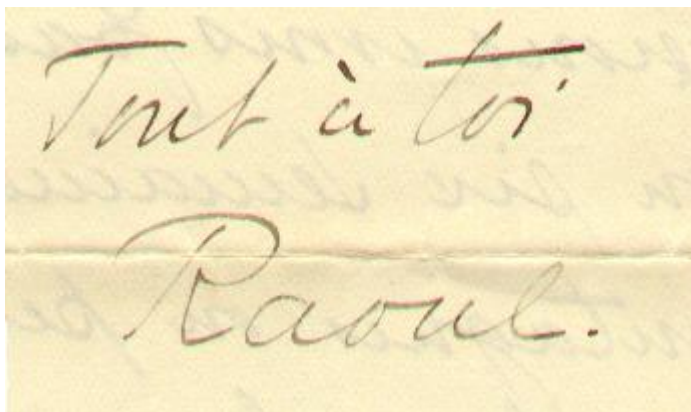 Tout à toi
Raoul.